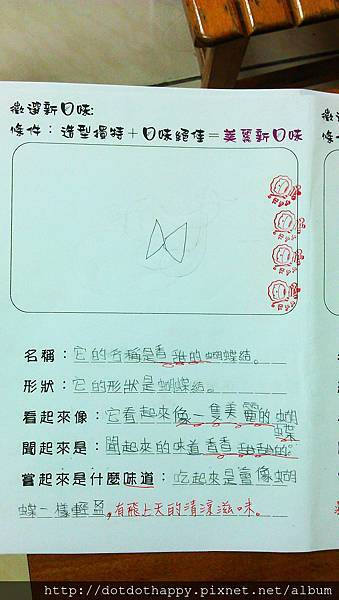 徵選新口味:
條件：造型獨特＋口味絕佳＝美麗新口味
名稱：它的名稱是香甜的蝴蝶結。
形狀：它的形狀是蝴蝶結。
看起來像：它看起來像一隻美麗的蝴
蝶
聞起來是：聞起來的味道香香甜甜的。
嘗起來是什麼味道：吃起來是會像蝴
蝶一樣輕盈,有飛上天的清涼滋味。
http://dotdothappy.pixnet.net/album